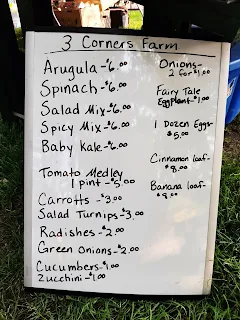 3 Corners Farm
Arugula - $6.00
Spinach - $6.00
Salad Mix - $6.00
Spicy Mix - $6.00
Baby Kale - $6.00
Tomato Medley
1 pint - $5.00
Carrotts - $3.00
Salad Turnips - $3.00
Radishes - $2.00
Green Onions - $2.00
Cucumbers - $1.00
Zucchini - $1.00
Onions -
2 for $1.00
Fairy Tale
Eggplant - $1.00
1 Dozen Eggs -
$5.00
Cinnamon loaf -
$8.00
Banana loaf -
$8.00